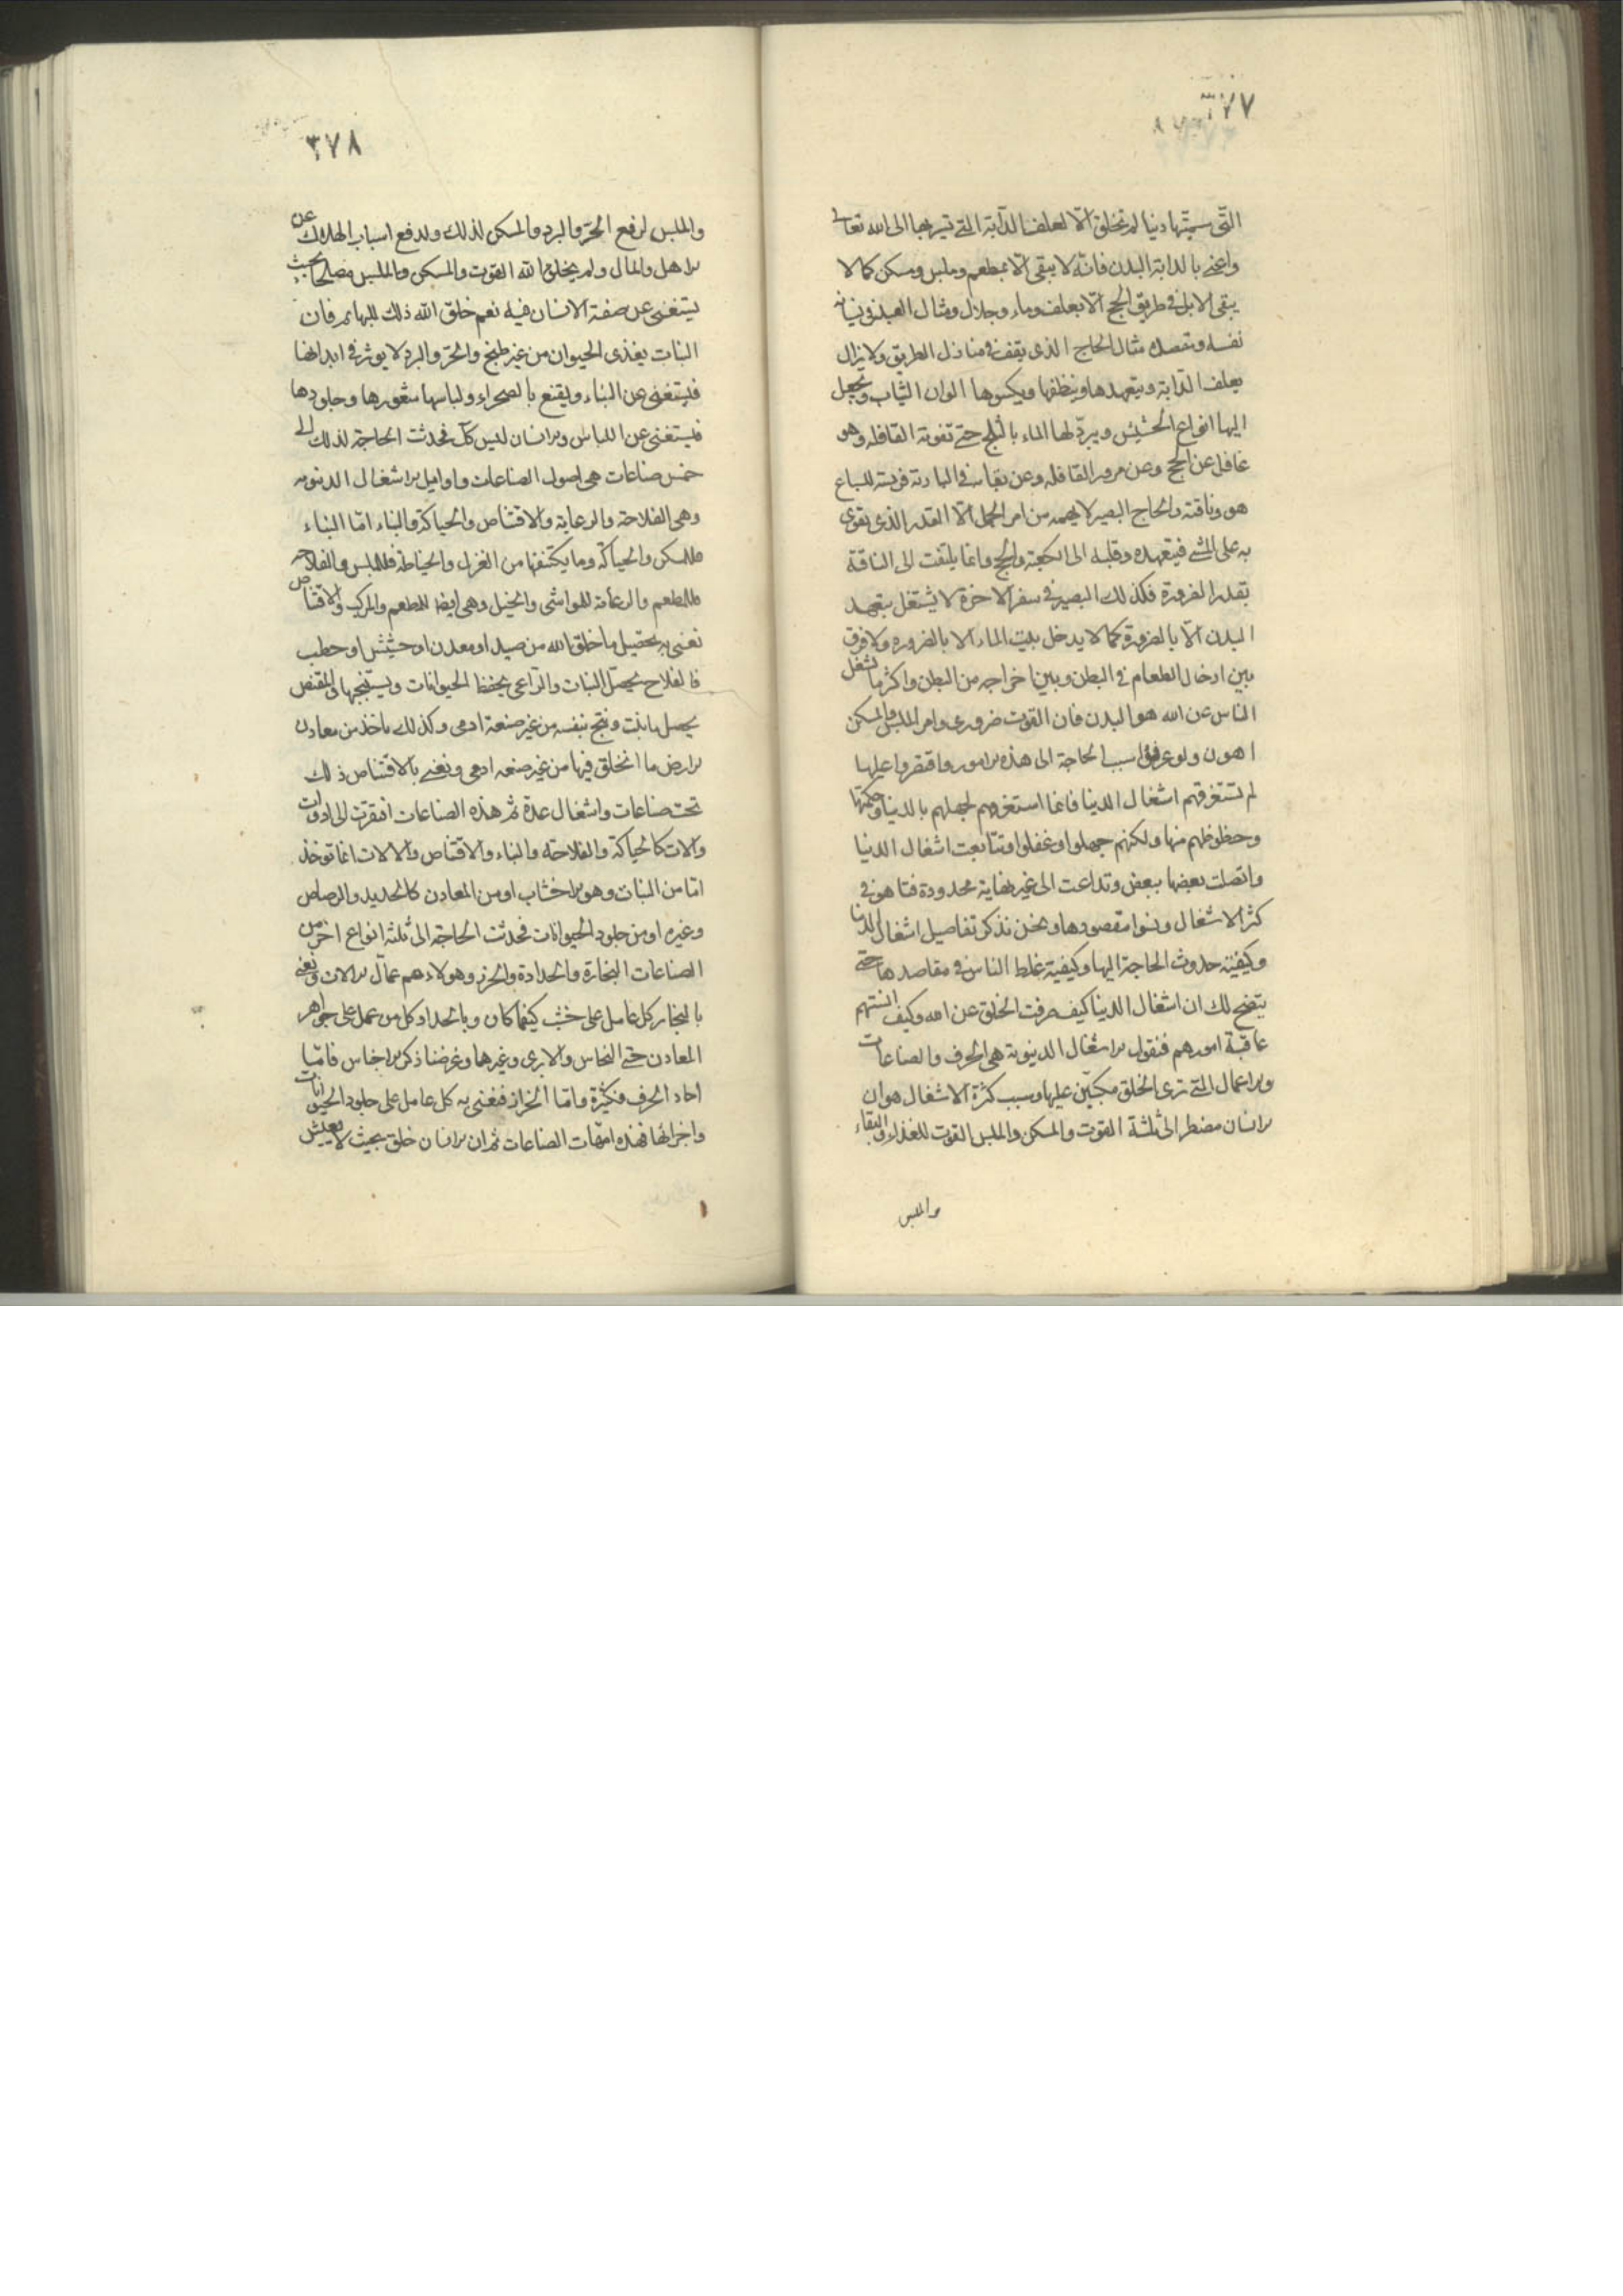 ٣٧٧
التى سميتها دنيا لم تخلق الا لعلف الدابة التى تسير بها الى الله تعالى
واعنى بالدابة البدن فانه لا يبقى الا بمطعم وملبس ومسكن كما لا
يبقى الابل فى طريق الحج الا بعلف وماء وجلال ومثال العبد فى نسيانه
نفسه ومقصده مثال الحاج الذى يقف فى منازل الطريق ولا يزال
يعلف الدابة ويتعهدها وينظفها ويكسوها الوان الثياب ويجعل
اليها انواع الحشيش ويبرد لها الماء بالثلج حتى تفوته القافله وهو
غافل عن الحج وعن مرور القافله وعن بقائه فى البادية فريسة للسباع
هو وناقته والحاج البصير لا يهمه من امر الجمل الا القدر الذى يقوى
به على المشى فيتعهده وقلبه الى الكعبة والحج وانما يلتفت الى الناقة
بقدر الضرورة فكذلك البصير فى سفر الاخرة لا يشتغل بتعهد
البدن الا بالضرورة كما لا يدخل بيت الماء الا بالضروره ولا فرق
بين ادخال الطعام فى البطن وبين اخراجه من البطن واكثر ما شغل
الناس عن الله هو البدن فان القوت ضرورى وامر الملبس والمسكن
اهون ولو عرفوا سبب الحاجة الى هذه الامور واقتصروا عليها
لم تستغرقهم اشغال الدنيا فانما استغرقهم لجهلهم بالدنيا وحكمتها
وحظوظهم منها ولكنهم جهلوا وغفلوا وتتابعت اشغال الدنيا
واتصلت بعضها ببعض وتداعت الى غير نهاية محدودة فتاهوا فى
كثر الاشغال ونسوا مقصودها ونحن نذكر تفاصيل اشغال الدنيا
وكيفية حدوث الحاجة اليها وكيفية غلط الناس فى مقاصدها حتى
يتضح لك ان اشغال الدنيا كيف صرفت الخلق عن الله وكيف انستهم
عاقبة امورهم فنقول الاشغال الدنيوية هى الحرف والصناعات
والاعمال التى ترى الخلق مكبين عليها وسبب كثرة الاشغال هو ان
الانسان مضطر الى ثلثة القوت والمسكن والملبس القوت للغذاء والبقاء
والملبس
٣٧٨
والملبس لدفع الحر والبرد والمسكن لذلك ولدفع اسباب الهلاك عن
الاهل والمال ولم يخلق الله القوت والمسكن والملبس مصلحا بحيث
يستغنى عن صنعة الانسان فيه نعم خلق الله ذلك للبهائم فان
النبات يغذى الحيوان من غير طبخ والحر والبرد لا يوثر فى ابدانها
فيستغنى عن البناء ويقنع بالصحراء ولباسها شعورها وجلودها
فيستغنى عن اللباس والانسان ليس كك فحدثت الحاجة لذلك الى
خمس صناعات هى اصول الصناعات واوايل الاشغال الدنيويه
وهى الفلاحة والرعاية والاقتناص والحياكة والبناء اما البناء
فللمسكن والحياكة وما يكتنفها من الغزل والخياطة فللملبس والفلاحة
فللمطعم والرعاية للمواشى والخيل وهى ايضا للمطعم والمركب والاقتناص
نعنى به تحصيل ما خلق الله من صيد او معدن او حشيش او حطب
فالفلاح يحصل النبات والراعى يحفظ الحيوانات ويستنتجها والمقتنص
يحصل ما نبت ونتج بنفسه من غير صنعة ادمى وكذلك ياخذ من معادن
الارض ما انخلق فيها من غير صنعه ادمى ونعنى بالاقتناص ذلك
تحت صناعات واشغال عدة ثم هذه الصناعات افتقرت الى ادوات
والات كالحياكة والفلاحة والبناء والاقتناص والالات انما توخذ
اما من النبات وهو الاخشاب او من المعادن كالحديد والرصاص
وغيره او من جلود الحيوانات فحدثت الحاجة الى ثلثة انواع اخر من
الصناعات النجارة والحدادة والخرز وهولاء هم عمال الالات ونعنى
بالنجار كل عامل على خشب كيفما كان وبالحداد كل من عمل على جواهر
المعادن حتى النحاس والابرى وغيرها وغرضنا ذكر الاجناس فاما
احاد الحرف فكثيرة واما الخراز فنعنى به كل عامل على جلود الحيوانات
واجزائها فهذه امهات الصناعات ثم ان الانسان خلق بحيث لا يعيش